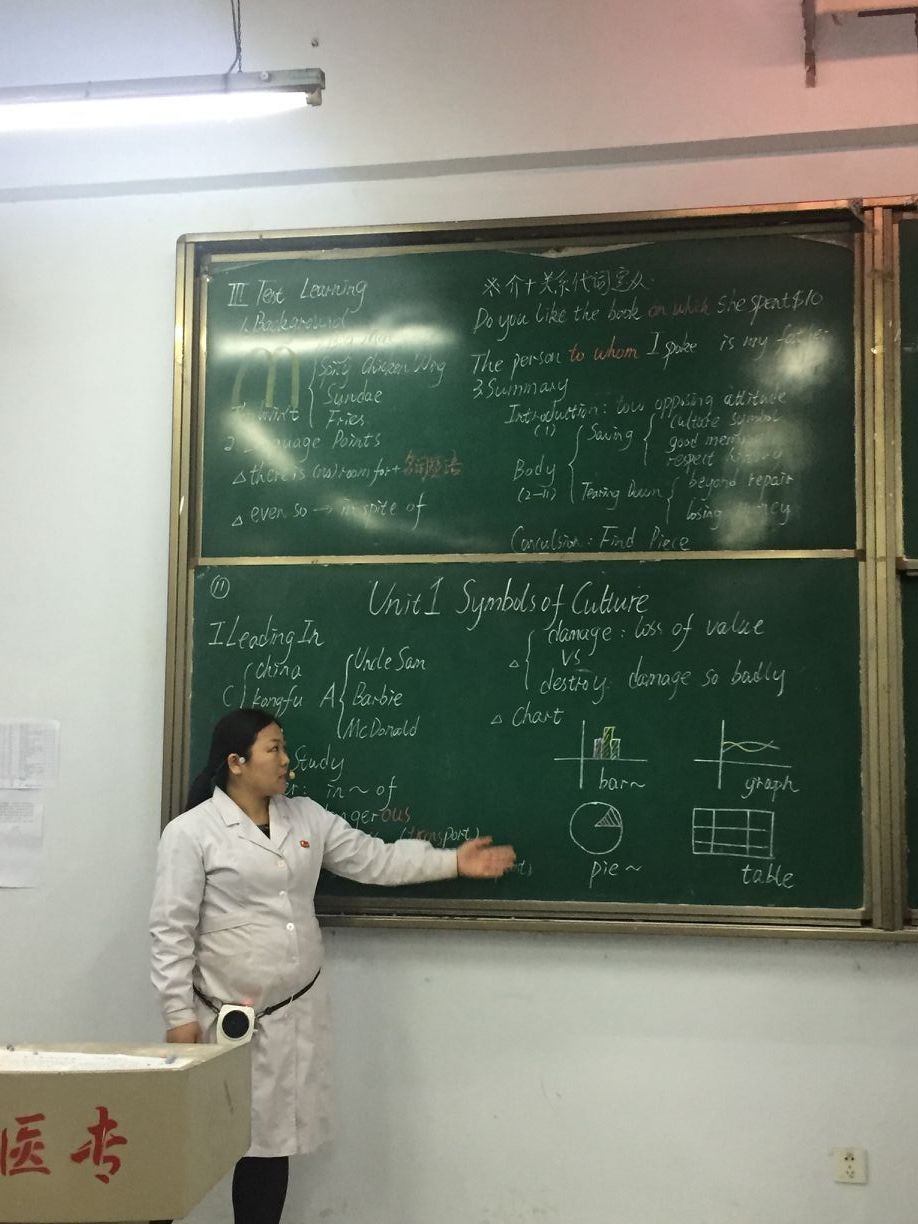 III Text Learning
1. Background
Spicy Chicken Wing
Sundae
Fries
2. Language Points
△ there is (no) room for + 名词短语
△ even so → in spite of
※介+关系代词定从
Do you like the book on which she spent $10
The person to whom I spoke is my
3. Summary
Introduction: two opposing attitude
(1)
Body
(2-11)
Saving
culture symbol
good
respect
Tearing Down
beyond repair
losing
Conculsion: Find Piece
⑪
Unit 1 Symbols of Culture
I Leading In
C
China
kongfu
A
Uncle Sam
Barbie
McDonald
△
damage: loss of value
VS
destroy: damage so badly
△ Chart
bar~
graph
pie~
table
Study
in ~ of
ngerous
(transport)
医专